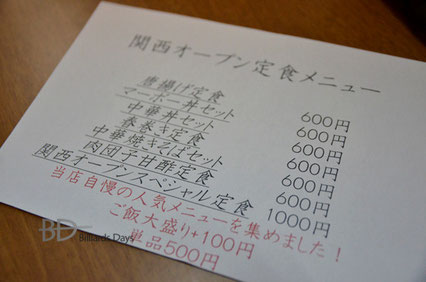 関西オープン定食メニュー
唐揚げ定食 600円
マーボー丼セット 600円
中華丼セット 600円
春巻き定食 600円
中華焼きそばセット 600円
肉団子甘酢定食 600円
関西オープンスペシャル定食 1000円
当店自慢の人気メニューを集めました!
ご飯大盛り+100円
単品500円
BD
Billiards Days